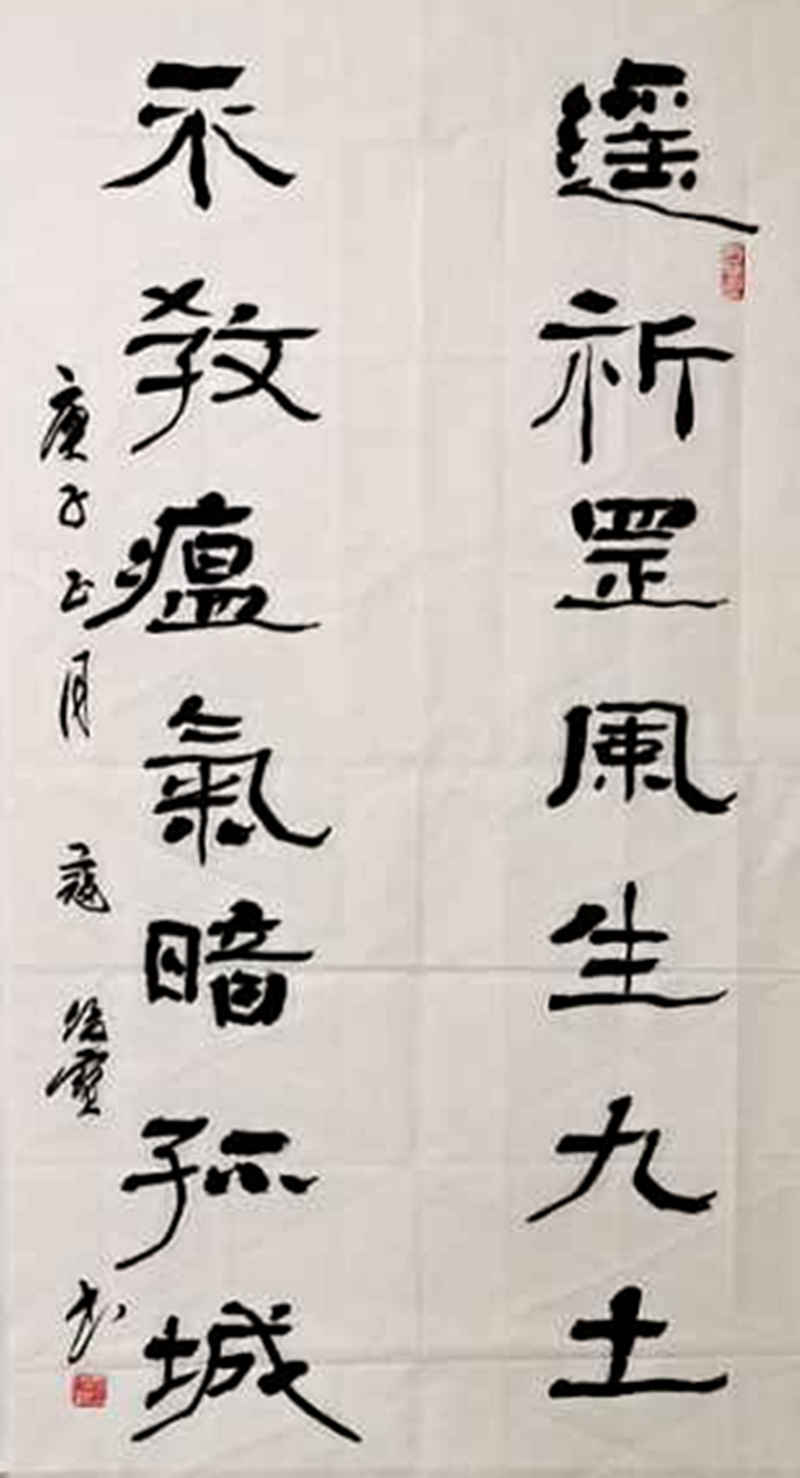 遥祈罡風生九土
不教瘟氣暗孤城
庚子正月 寇 寶 书